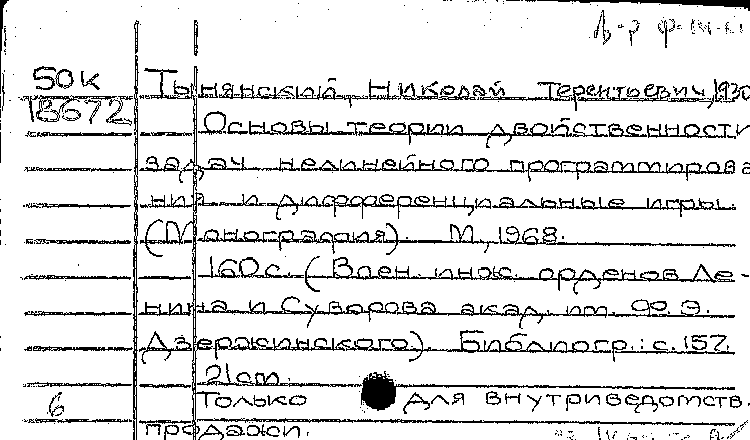 50к Тынянский, Николай Терентьевич, 1930
18672
Основы теории двойственности
задач нелинейного программирова
ния и дифференциальные игры.
(Монография). М., 1968.
160с. (Воен. инж. орденов Ле-
нина и Суворова акад. им. Ф. Э.
Дзержинского). Библиогр.: с. 157.
21см.
6 Только для внутриведомств.
продажи.